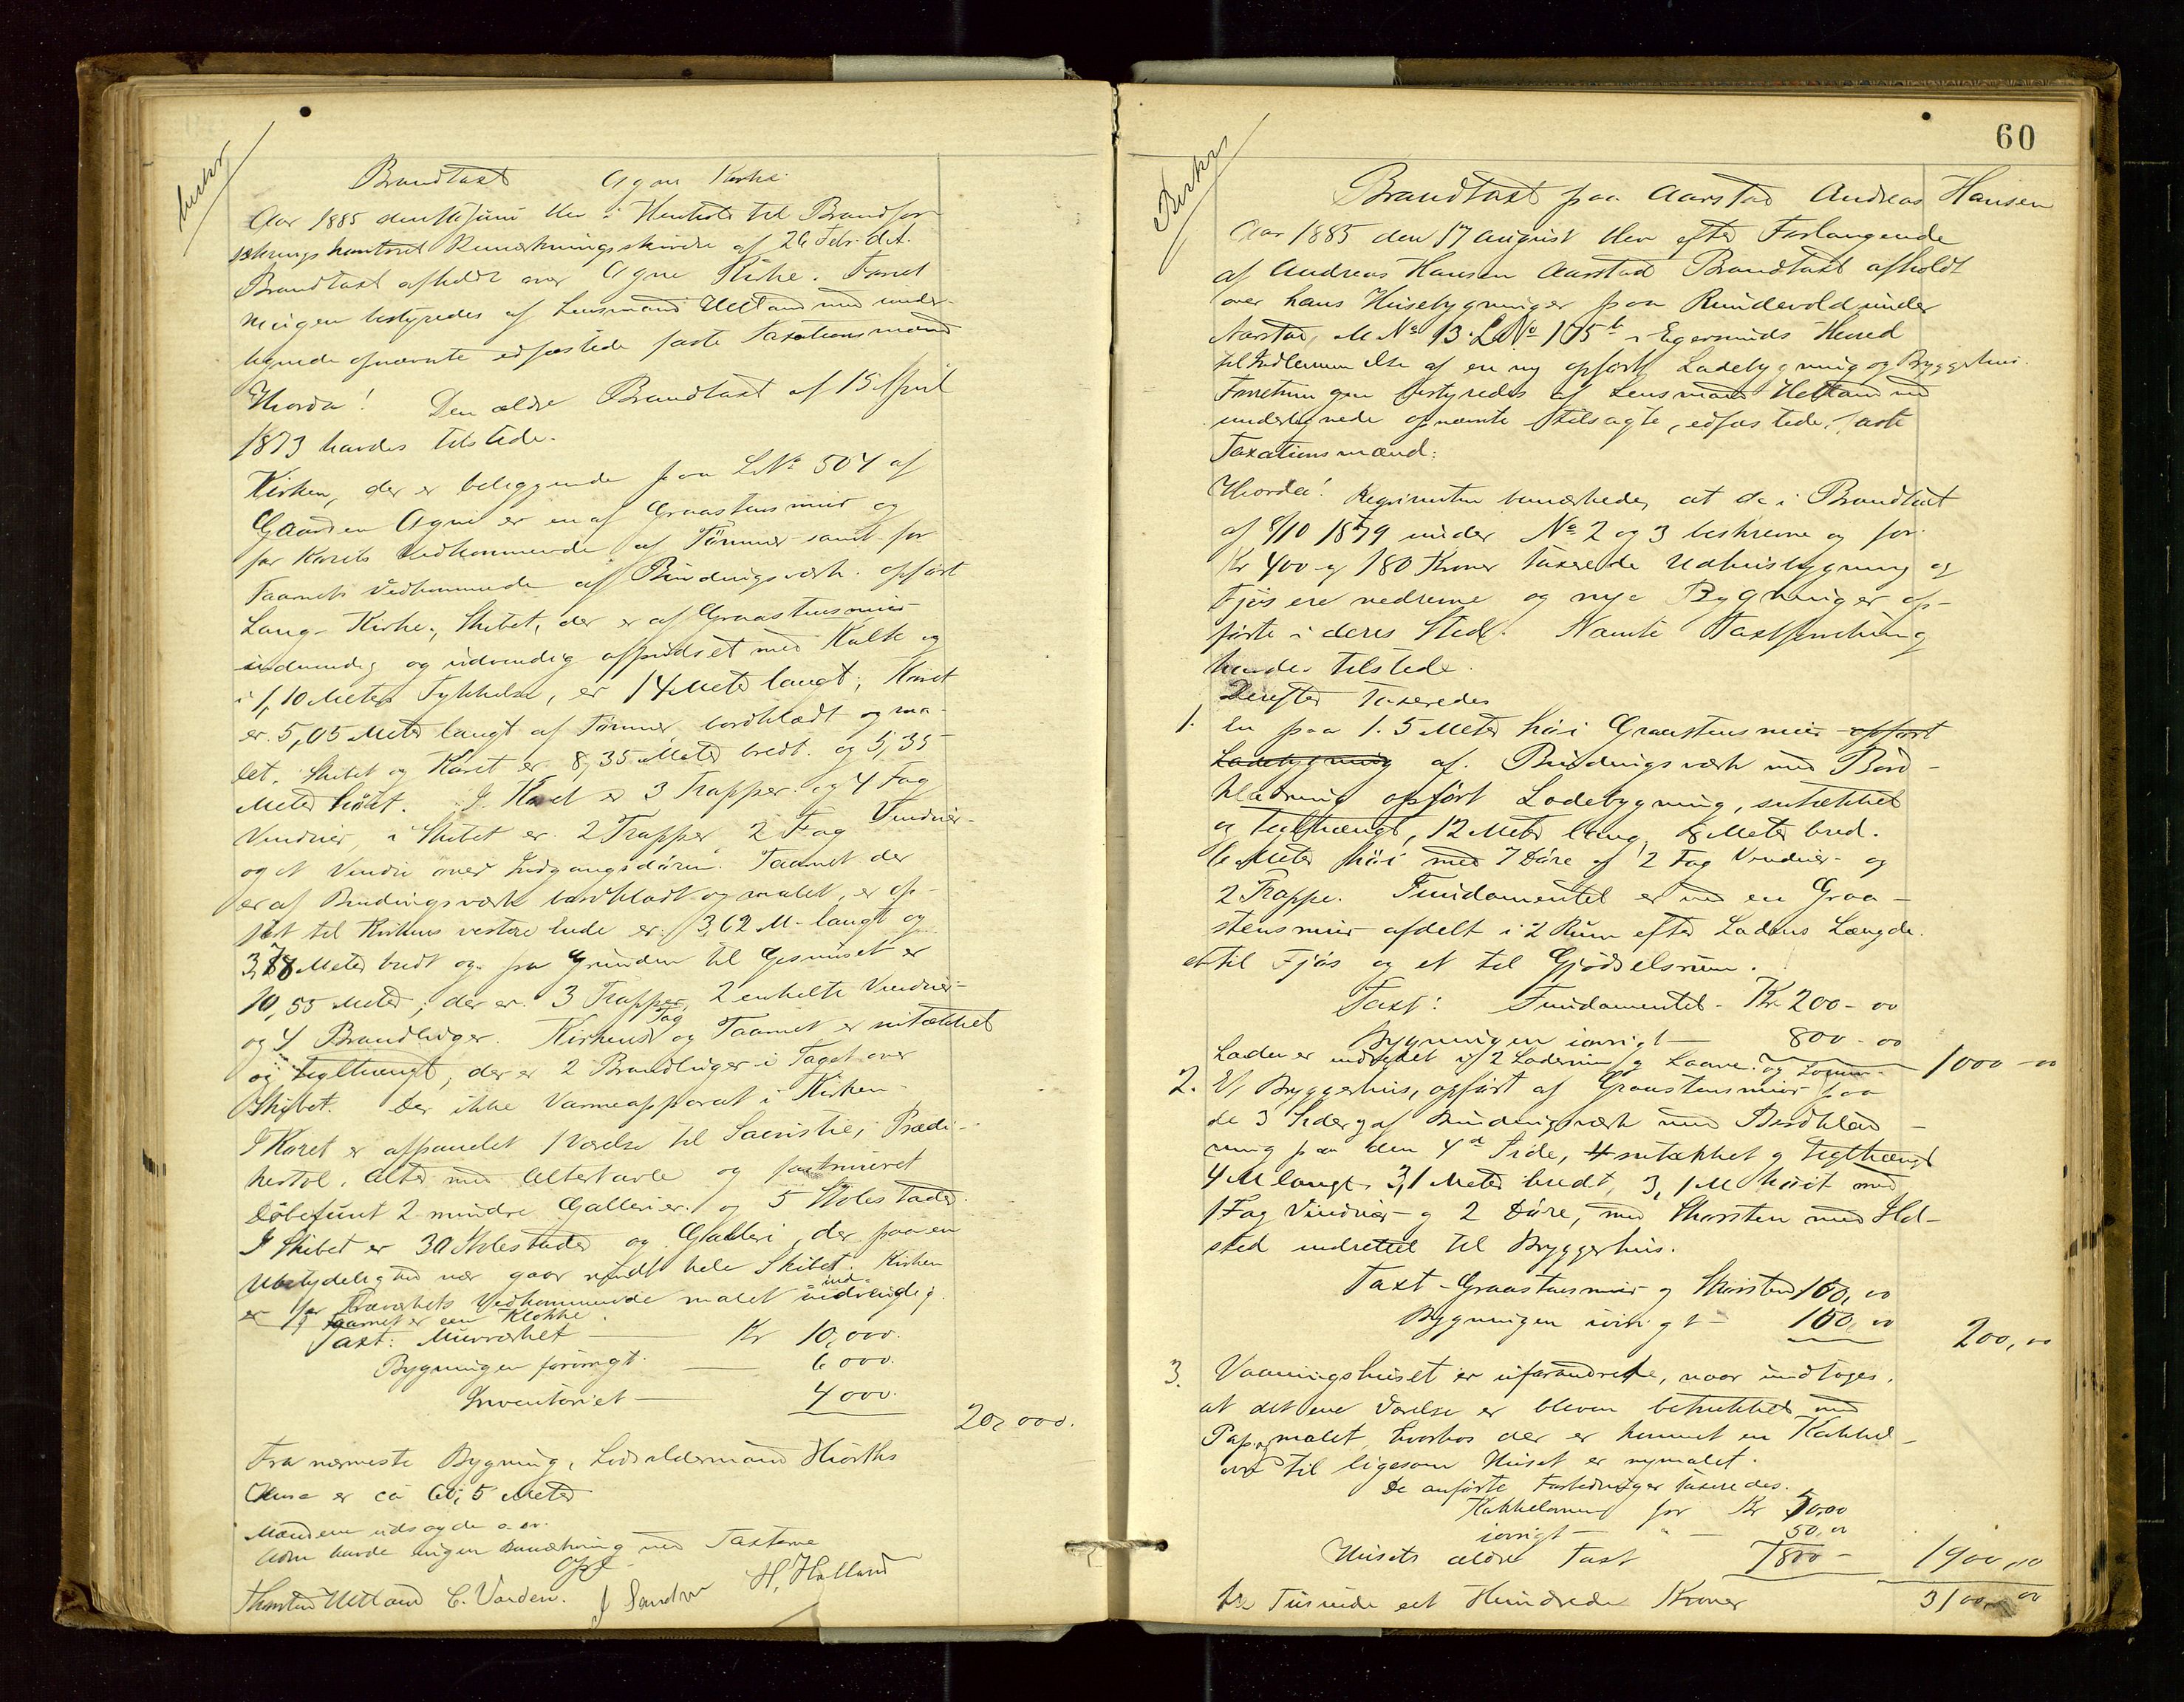 Brandtaxt Ogne Kirke.
Aar 1885 den 16 Juni blev i Henhold til Brandfor-
sikringskontoret Bemærkningsskrivelse af 26 Febr. d.A.
Brandtaxt afholdt over Ogne Kirke. Forret
ningen bestyredes af Lensmand Uetland med under-
tegnede opnævnte edfæstede faste Taxationsmænd
Hvorda! Den ældre Brandtaxt af 15 April
1873 havdes tilstede.
Kirken, der er beliggende paa LNo 504 af
Gaarden Ogne er en af Graastensmur og
for Korets Vedkommende af Tømmer samt for
Taarnets Vedkommende af Bindingsværk opført
Lang-Kirke, Skibet, der er af Graastensmur
indvendig og udvendig afpudset med Kalk og
i 1,10 Meters Tykkelse, er 14 Meter langt; Koret
er 5,05 Meter langt af Tømmer, bordklædt og ma-
let. Skibet og Koret er 8,35 Meter bredt og 5,35
Meter høit. I Koret er 3 Trapper og 4 Fag
Vinduer, i Skibet er 2 Trapper, 2 Fag Vinduer
og et Vindu over Indgangsdøren. Taarnet der
er af Bindingsværk bordklædt og malet, er op-
ført til Kirkens vestre Ende er 3,62 M. langt og
3,78 Meter bredt og fra Grunden til Gesimset er
10,55 Meter; der er 3 Trapper, 2 enkelte Vinduer
og 4 Brandluger. Kirkens Tag og Taarnet er sutækket
og teglhængt, der er 2 Brandluger i Taget over
Skibet. Der ikke Varmeapparat i Kirken.
I Koret er afpanelet 1 Værelse til Sacristie, Prædi-
kestol, Alter med Altertavle og
Døbefunt 2 mindre Gallerier og 5 Stolestader.
I Skibet er 30 Stolestader og Galleri, der paa en
Ubetydelighed nær gaar rundt hele Skibet. Kirken
er for Træværkets Vedkommende malet ind- udvendig.
I Taarnet er een Klokke.
Taxt: Murværket — Kr 10,000.
Bygningen forøvrigt — 6000.
Inventariet — 4000.
20,000.
Fra nærmeste Bygning, Lodsoldermand Hiorths
Huse er ca 60,5 Meter
Mændene udsagde a. er.
ingen Bemærkning ved Taxterne
Opl.
Thorsten Uetland C. Varden. J Sandve H. Holland
60
Brandtaxt paa Aarstad Andreas Hansen
Aar 1885 den 17 August blev efter Forlangende
af Andreas Hansen Aarstad Brandtaxt afholdt
over hans Husebygninger paa Rundevold under
Aarstad, M No 13 LNo 175b i Egersunds Herred
til Indlemmelse af en ny opført Ladebygning og Bryggehus.
Forretningen bestyredes af Lensmand Uetland med
undertegnede opnævnte tilsagte, edfæstede, faste
Taxationsmænd:
Hvorda! Requirenten bemærkede, at de i Brandtaxt
af 8/10 1879 under No 2 og 3 beskrevne og for
Kr 400 og 180 Kroner taxerede Udhusbygning og
Fjøs ere nedrevne og nye Bygninger op-
førte i deres Sted. Nævnte Taxtforretning
havdes tilstede.
Derefter taxeredes
1. En paa 1.5 Meter høi Graastensmur opført
Ladebygning af Bindingsværk med Bord-
klædning opført Ladebygning, sutækket
og teglhængt, 12 Meter lang, 8 Meter bred.
6 Meter høi med 7 Døre af 2 Fag Vinduer og
2 Trappe. Fundamentet er ved en Graa-
stensmur afdelt i 2 Rum efter Ladens Længde.
et til Fjøs og et til Gjødselsrum.
Taxt: Fundamentet Kr 200-00
Bygningen iøvrigt — 800-00
Laden er indredet i 2 Laderum og Laave.
1000-00
2. Et Bryggerhus, opført af Graastensmur paa
de 3 Sider, af Bindingsværk med Bordklæd-
ning paa den 4de Side, sutækket og teglhængt
4 M langt, 3,1 Meter bredt, 3,1 M høit med
1 Fag Vinduer og 2 Døre, med Skorsten med Ild-
sted indrettet til Bryggerhus.
Taxt - Graastensmur og Skorsten 100,00
Bygningen iøvrigt — 100,00
200,00
3. Vaaningshuset er uforandrede, naar undtages,
at det ene Værelse er bleven betrukket med
Pap og malet, hvorhos der er kommet en Kakkel-
ovn til ligesom Huset er nymalet.
De anførte Forbedringer taxeredes.
Kakkelovnen for Kr 50,00
iøvrigt — " — 50,00
Husets ældre Taxt 1800 -
1900,00
tre Tusinde eet Hundrede Kroner 3100,00